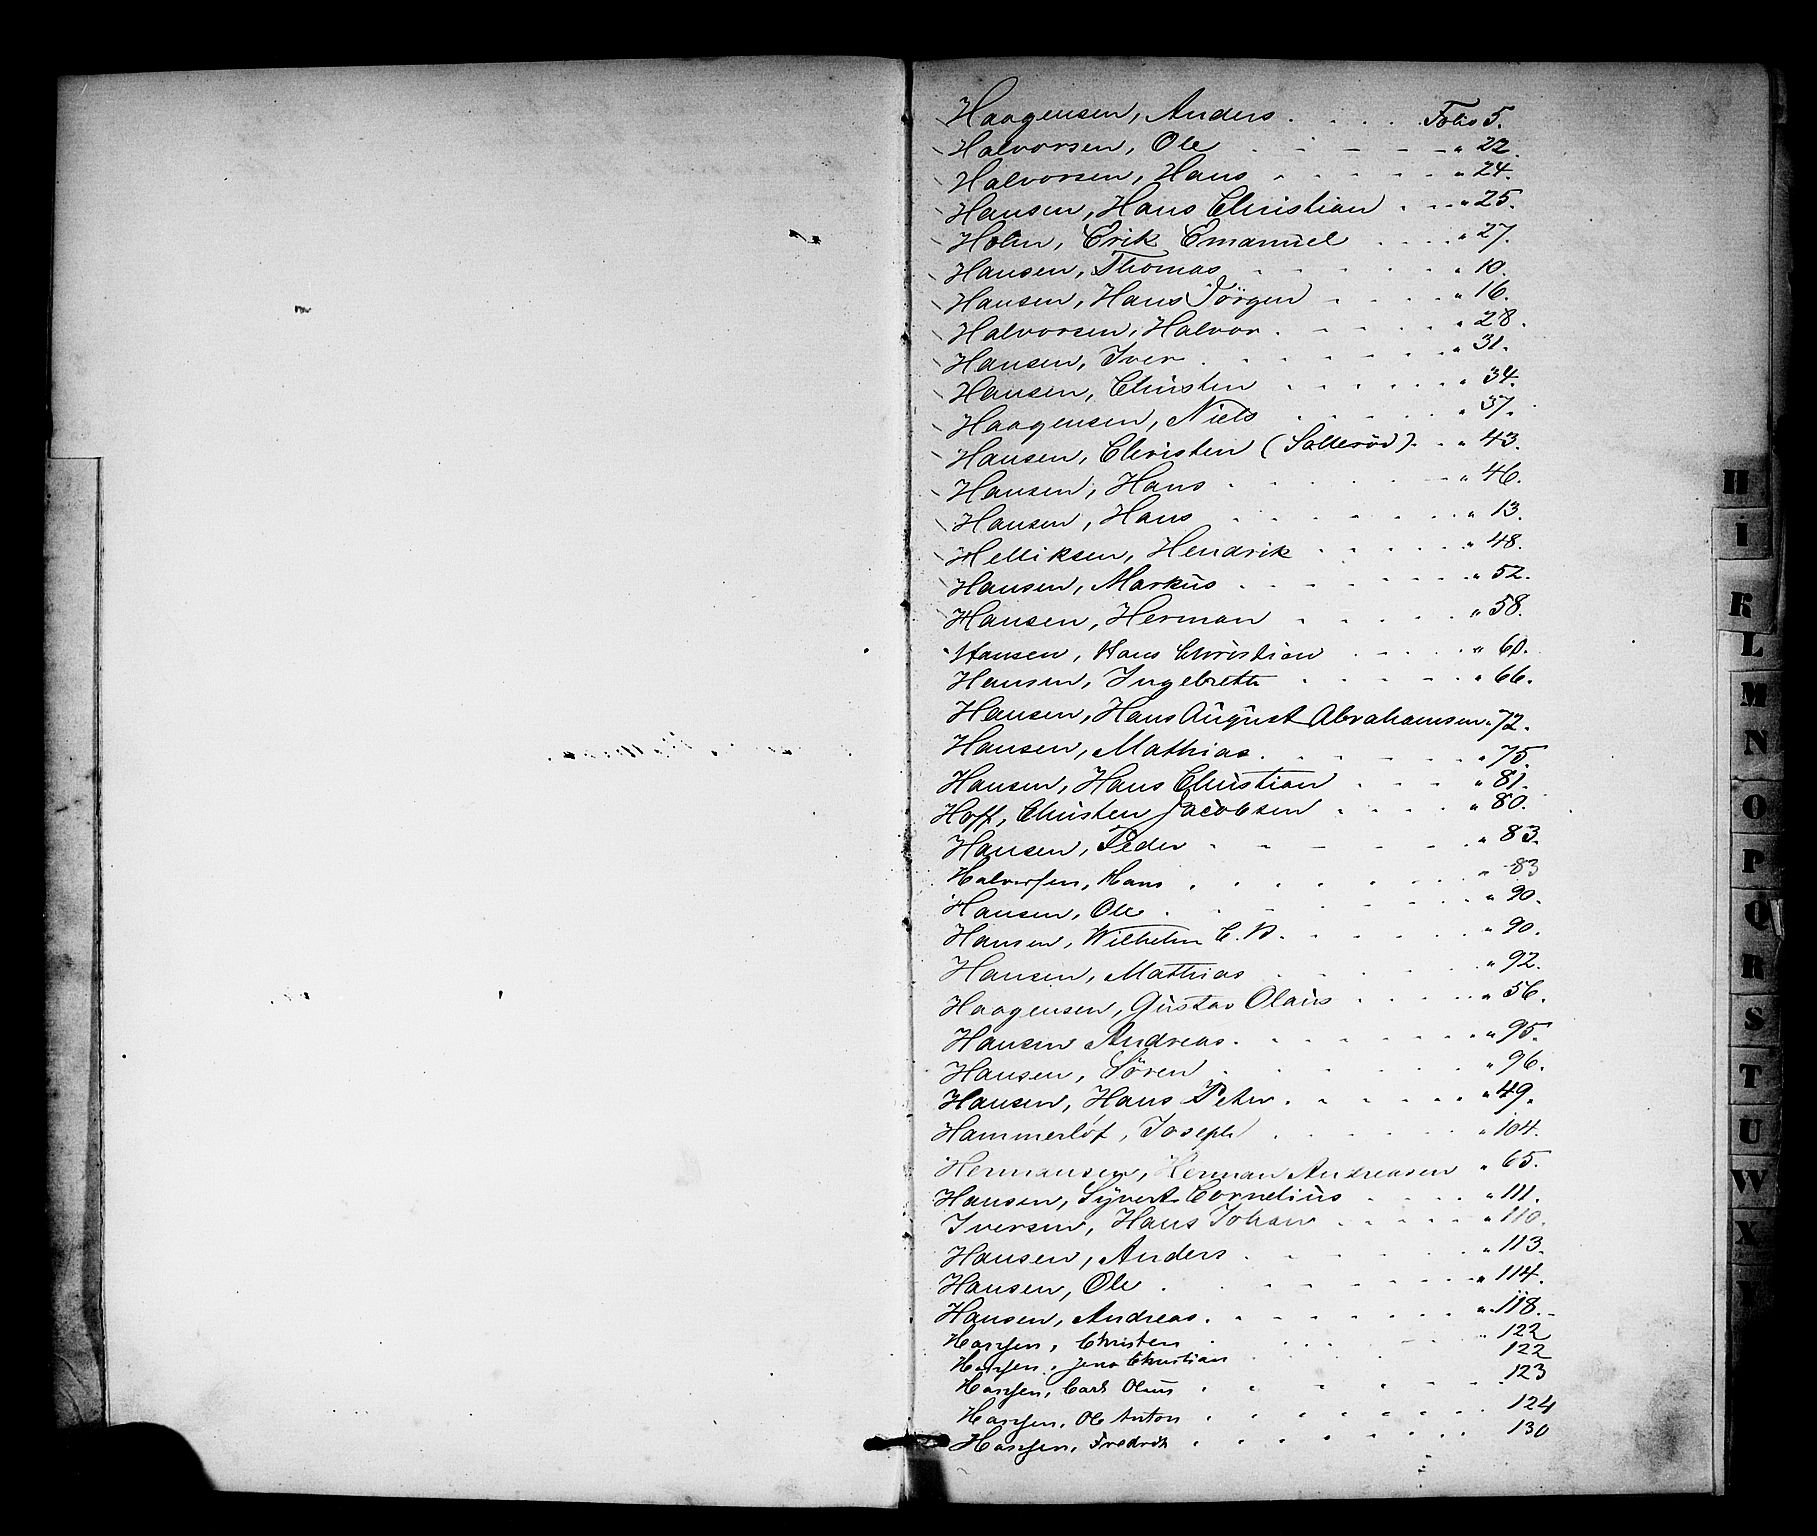 Haagensen, Anders . . . . Folio 5.
Halvorsen, Ole . - - - „ 22.
Halvorsen, Hans . . . . . „ 24.
Hansen, Hans Christian . . . „ 25.
Holm, Erik Emanuel . . . . „ 27.
Hansen, Thomas . . . . . „ 10.
Hansen, Hans Jörgen . . . . „ 16.
Halvorsen, Halvor . . . . . „ 28.
Hansen, Iver . . . . . . „ 31.
Hansen, Christen . . . . . „ 34.
Haagensen, Niels . . . . . „ 37.
Hansen, Christen (Solleröd) . . „ 43.
Hansen, Hans . . . . . „ 46.
Hansen, Hans . . . . . . „ 13.
Helliksen, Hendrik . . . . . „ 48.
Hansen, Markus . . . . . „ 52.
Hansen, Herman . . . . . „ 58.
Hansen, Hans Christian . . . . „ 60.
Hansen, Ingebreth . . . . . „ 66.
Hansen, Hans August Abrahamsen „ 72.
Hansen, Mathias . . . . . „ 75.
Hansen, Hans Christian . . . . „ 81.
Hoff, Christen Jacobsen . . . . „ 80.
Hansen, Peder . . . . . „ 83.
Halvorsen, Hans . . . . . „ 83
Hansen, Ole . . . . . . „ 90.
Hansen, Wilhelm C. . . . . . „ 90.
Hansen, Mathias . . . . . „ 92.
Haagensen, Gustav Olaus . . . . „ 56.
Hansen Andreas . . . . . . „ 95.
Hansen, Sören . . . . . „ 96.
Hansen, Hans Peter . . . . . „ 49.
Hammerlöf, Joseph . . . . . „ 104.
Hermansen, Herman Andreasen „ 65.
Hansen, Syvert Cornelius . . . . „ 111.
Iversen, Hans Johan . . . . „ 110.
Hansen, Anders . . . . . „ 113.
Hansen, Ole . . . . . . „ 114.
Hansen, Andreas . . . . . . „ 118.
Hansen, Christen . . . . „ 122
Hansen, Jens Christian . . . . 122
Hansen, Carl Olaus . . . . . 123
Hansen, Ole Anton . . . . . . 124
Hansen, Fredrik . . . . . . 130
H
I
K
L
M
N
O
P
Q
R
S
T
U
W
X
Y